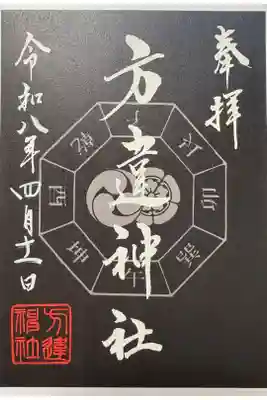 奉拝
方違神社
令和八年四月十一日
方違
神社
乾
卯
酉
巽
坤
午